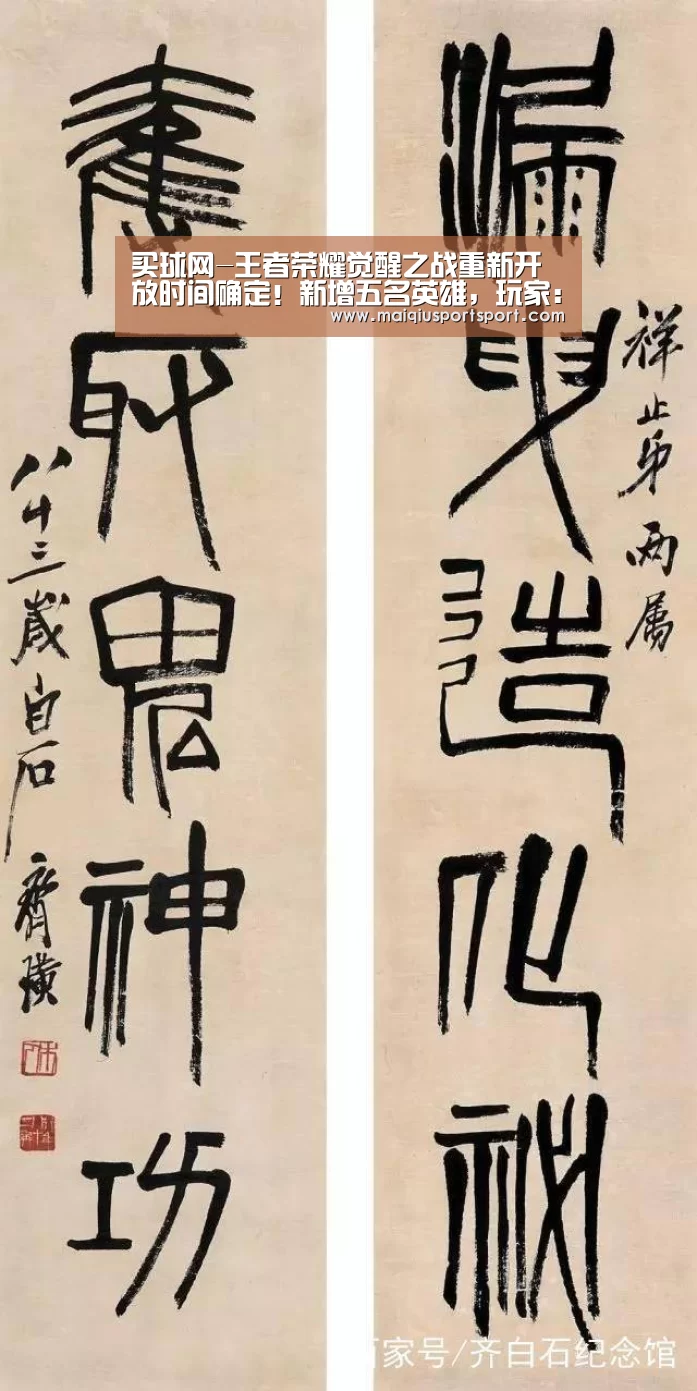 买球网-王者荣耀觉醒之战重新开
放时间确定！新增五名英雄，玩家：
www.maiqiusportsport.com
祥止弟两属
漏曳造化祕
奪取鬼神功
八十三歲白石齊璜
百家号/齐白石纪念馆